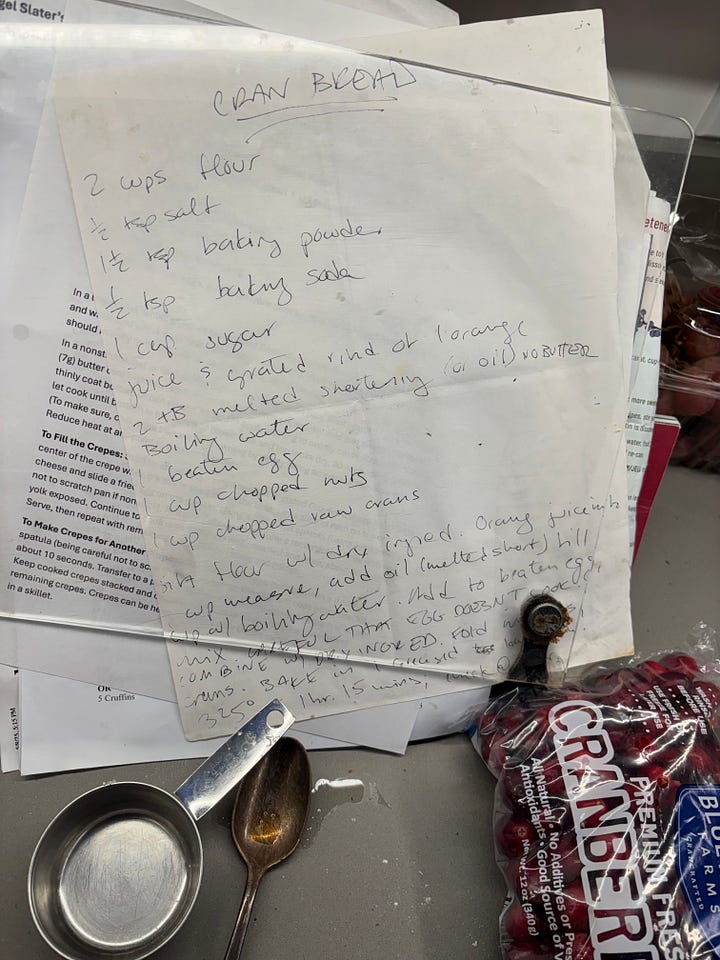 gel Slater's
CRAN BREAD
2 cups flour
½ tsp salt
1½ tsp baking powder
½ tsp baking soda
1 cup sugar
juice & grated rind of 1 orange
2 TB melted shortening (or oil) NO BUTTER
Boiling water
1 beaten egg
1 cup chopped nuts
1 cup chopped raw crans
sift flour w/ dry ingred. Orang juice into
cup measure, add oil (melted short) fill
cup w/ boiling water. Add to beaten egg,
mix. CAREFUL THAT EGG DOESN'T COOK
COMBINE W/ DRY INGRED. FOLD
crans. BAKE in 1 greased
325° 1 hr. 15 mins,
In a
and w
should
In a nonst
(7g) butter
thinly coat be
let cook until b
(To make sure, c
Reduce heat at
To Fill the Crepes:
center of the crepe w
cheese and slide a frie
not to scratch pan if non
yolk exposed. Continue to
Serve, then repeat with rem
To Make Crepes for Another
spatula (being careful not to sc
about 10 seconds. Transfer to a p
Keep cooked crepes stacked and
remaining crepes. Crepes can be he
in a skillet.
OR
5 Cruffins
5:15 PM
etene
CRANBER
PREMIUM FRES
All Natural • No Additives or Pres
Antioxidants • Good Source of V
Net Wt. 12 oz (340g)
BL
FARMS